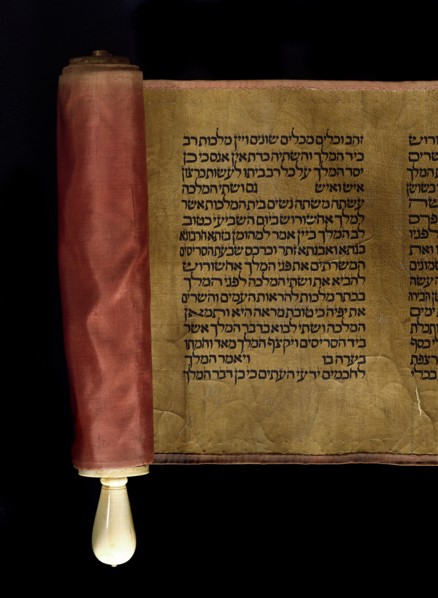 זהב וכלים מכלים שונים ויין מלכות רב
כיד המלך והשתיה כדת אין אנס כי כן
יסד המלך על כל רב ביתו לעשות כרצון
איש ואיש גם ושתי המלכה
עשתה משתה נשים בית המלכות אשר
למלך אחשורוש ביום השביעי כטוב
לב המלך ביין אמר למהומן בזתא חרבונא
בגתא ואבגתא זתר וכרכס שבעת הסריסים
המשרתים את פני המלך אחשורוש
להביא את ושתי המלכה לפני המלך
בכתר מלכות להראות העמים והשרים
את יפיה כי טובת מראה היא ותמאן
המלכה ושתי לבוא בדבר המלך אשר
ביד הסריסים ויקצף המלך מאד וחמתו
בערה בו ויאמר המלך
לחכמים ידעי העתים כי כן דבר המלך